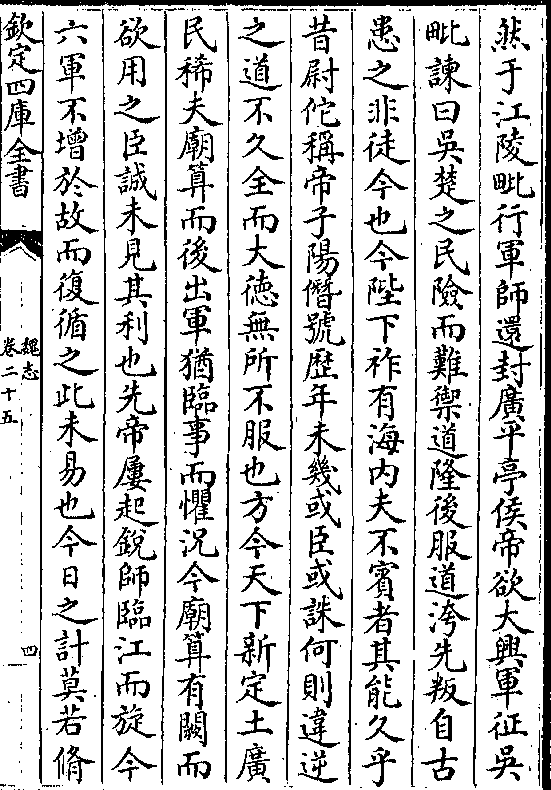 然于江陵毗行軍師還封廣平亭侯帝欲大興軍征吳
毗諫曰吳楚之民險而難禦道隆後服道洿先叛自古
患之非徒今也今陛下祚有海內夫不賓者其能久乎
昔尉佗稱帝子陽僭號歷年未幾或臣或誅何則違逆
之道不久全而大德無所不服也方今天下新定土廣
民稀夫廟算而後出軍猶臨事而懼況今廟算有闕而
欲用之臣誠未見其利也先帝屢起銳師臨江而旋今
六軍不增於故而復循之此未易也今日之計莫若脩
欽定四庫全書
魏志
卷二十五
四